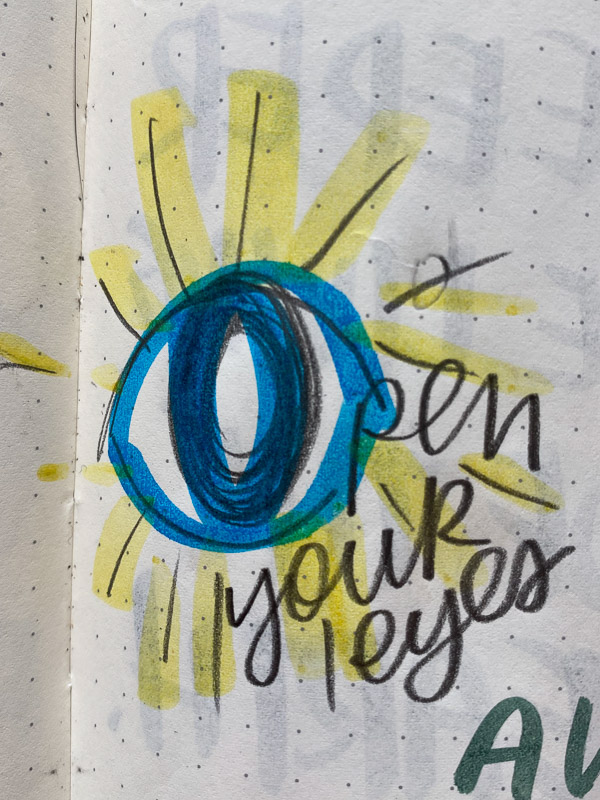 Open
your
eyes